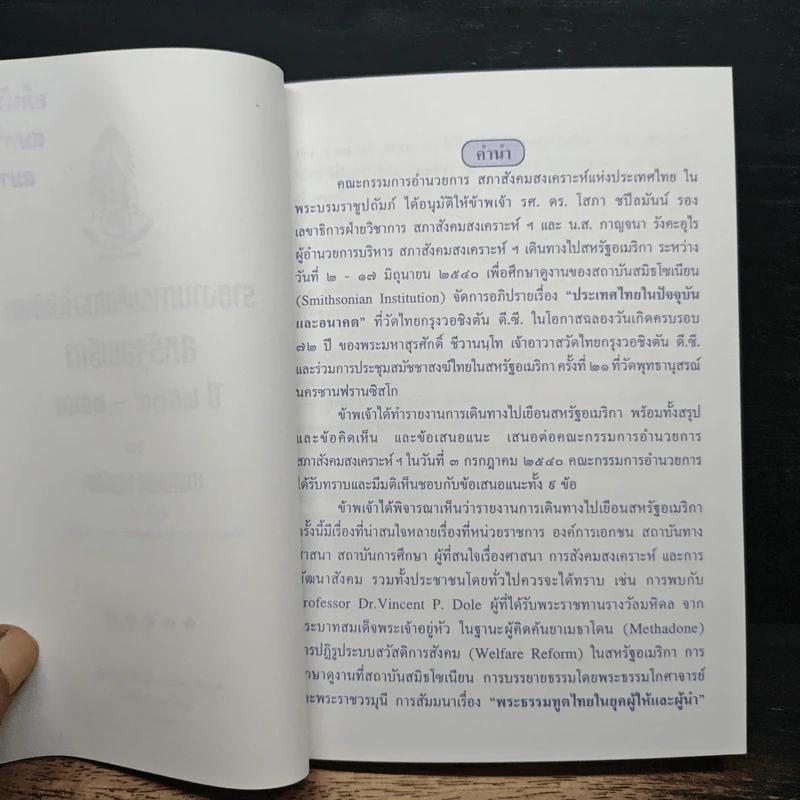 คำนำ
คณะกรรมการอำนวยการ สภาสังคมสงเคราะห์แห่งประเทศไทย ใน
พระบรมราชูปถัมภ์ ได้อนุมัติให้ข้าพเจ้า รศ. ดร. โสภา ชปีลมันน์ รอง
เลขาธิการฝ่ายวิชาการ สภาสังคมสงเคราะห์ ฯ และ น.ส. กาญจนา รังคะอุไร
ผู้อำนวยการบริหาร สภาสังคมสงเคราะห์ ฯ เดินทางไปสหรัฐอเมริกา ระหว่าง
วันที่ ๒ - ๑๗ มิถุนายน ๒๕๔๐ เพื่อศึกษาดูงานของสถาบันสมิธโซเนียน
(Smithsonian Institution) จัดการอภิปรายเรื่อง "ประเทศไทยในปัจจุบัน
และอนาคต" ที่วัดไทยกรุงวอชิงตัน ดี.ซี. ในโอกาสฉลองวันเกิดครบรอบ
๗๒ ปี ของพระมหาสุรศักดิ์ ชีวานนฺโท เจ้าอาวาสวัดไทยกรุงวอชิงตัน ดี.ซี.
และร่วมการประชุมสมัชชาสงฆ์ไทยในสหรัฐอเมริกา ครั้งที่ ๒๑ ที่วัดพุทธานุสรณ์
นครซานฟรานซิสโก
ข้าพเจ้าได้ทำรายงานการเดินทางไปเยือนสหรัฐอเมริกา พร้อมทั้งสรุป
และข้อคิดเห็น และข้อเสนอแนะ เสนอต่อคณะกรรมการอำนวยการ
สภาสังคมสงเคราะห์ ฯ ในวันที่ ๓ กรกฎาคม ๒๕๔๐ คณะกรรมการอำนวยการ
ได้รับทราบและมีมติเห็นชอบกับข้อเสนอแนะทั้ง ๙ ข้อ
ข้าพเจ้าได้พิจารณาเห็นว่ารายงานการเดินทางไปเยือนสหรัฐอเมริกา
ครั้งนี้มีเรื่องที่น่าสนใจหลายเรื่องที่หน่วยราชการ องค์การเอกชน สถาบันทาง
ศาสนา สถาบันการศึกษา ผู้ที่สนใจเรื่องศาสนา การสังคมสงเคราะห์ และการ
พัฒนาสังคม รวมทั้งประชาชนโดยทั่วไปควรจะได้ทราบ เช่น การพบกับ
Professor Dr.Vincent P. Dole ผู้ที่ได้รับพระราชทานรางวัลมหิดล จาก
พระบาทสมเด็จพระเจ้าอยู่หัว ในฐานะผู้คิดค้นยาเมธาโดน (Methadone)
การปฏิรูประบบสวัสดิการสังคม (Welfare Reform) ในสหรัฐอเมริกา การ
ศึกษาดูงานที่สถาบันสมิธโซเนียน การบรรยายธรรมโดยพระธรรมโกศาจารย์
และพระราชวรมุนี การสัมมนาเรื่อง "พระธรรมทูตไทยในยุคผู้ให้และผู้นำ"